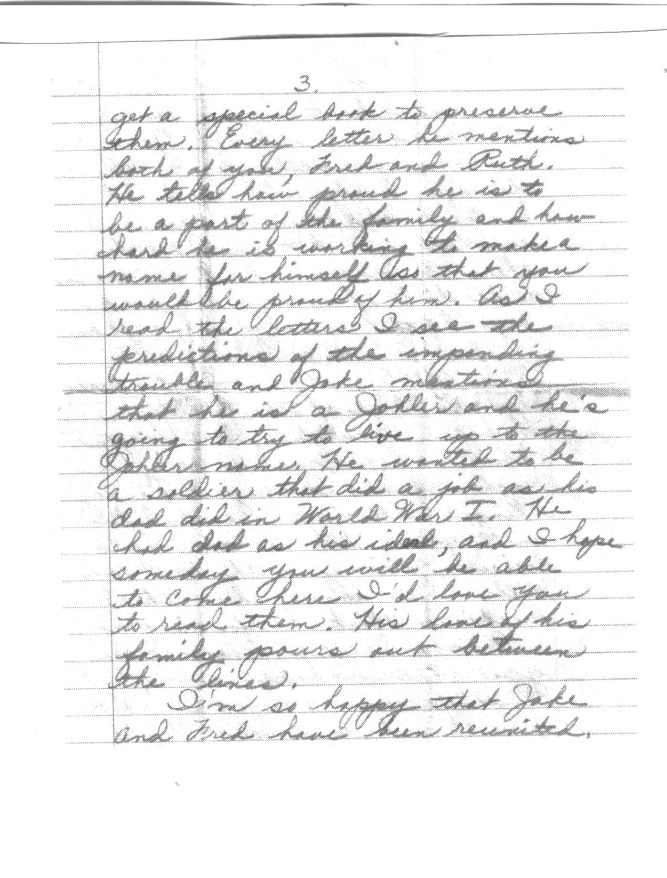 3.
get a special book to preserve
them. Every letter he mentions
both of you, Fred and Ruth.
He tells how proud he is to
be a part of the family and how
hard he is working to make a
name for himself so that you
would be proud of him. As I
read the letters I see the
predictions of the impending
trouble and Jake mentions
that he is a Johler and he's
going to try to live up to the
Johler name. He wanted to be
a soldier that did a job as his
dad did in World War I. He
had dad as his ideal, and I hope
someday you will be able
to come here I'd love you
to read them. His love of his
family pours out between
the lines.
I'm so happy that Jake
and Fred have been reunited.